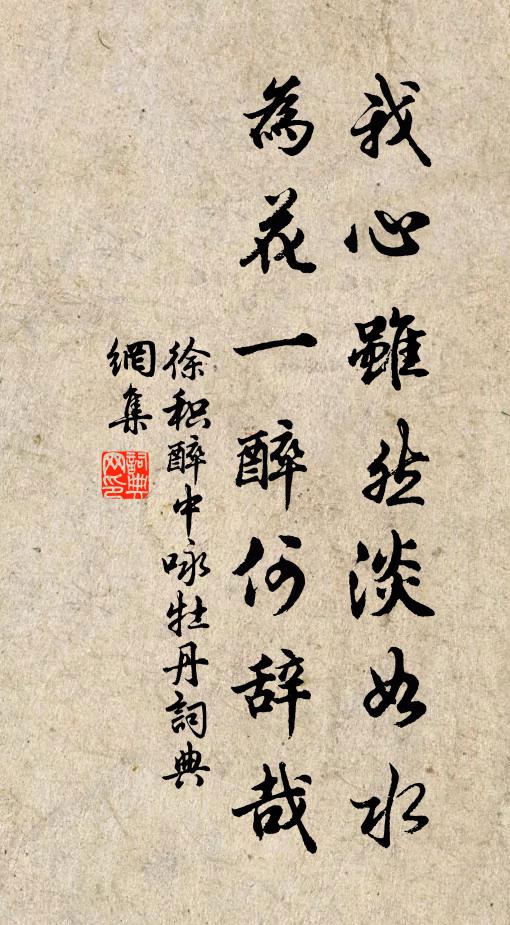 我心雖然淡如水
為花一醉何辞哉
徐积醉中咏牡丹詞典
網集
詞典網印